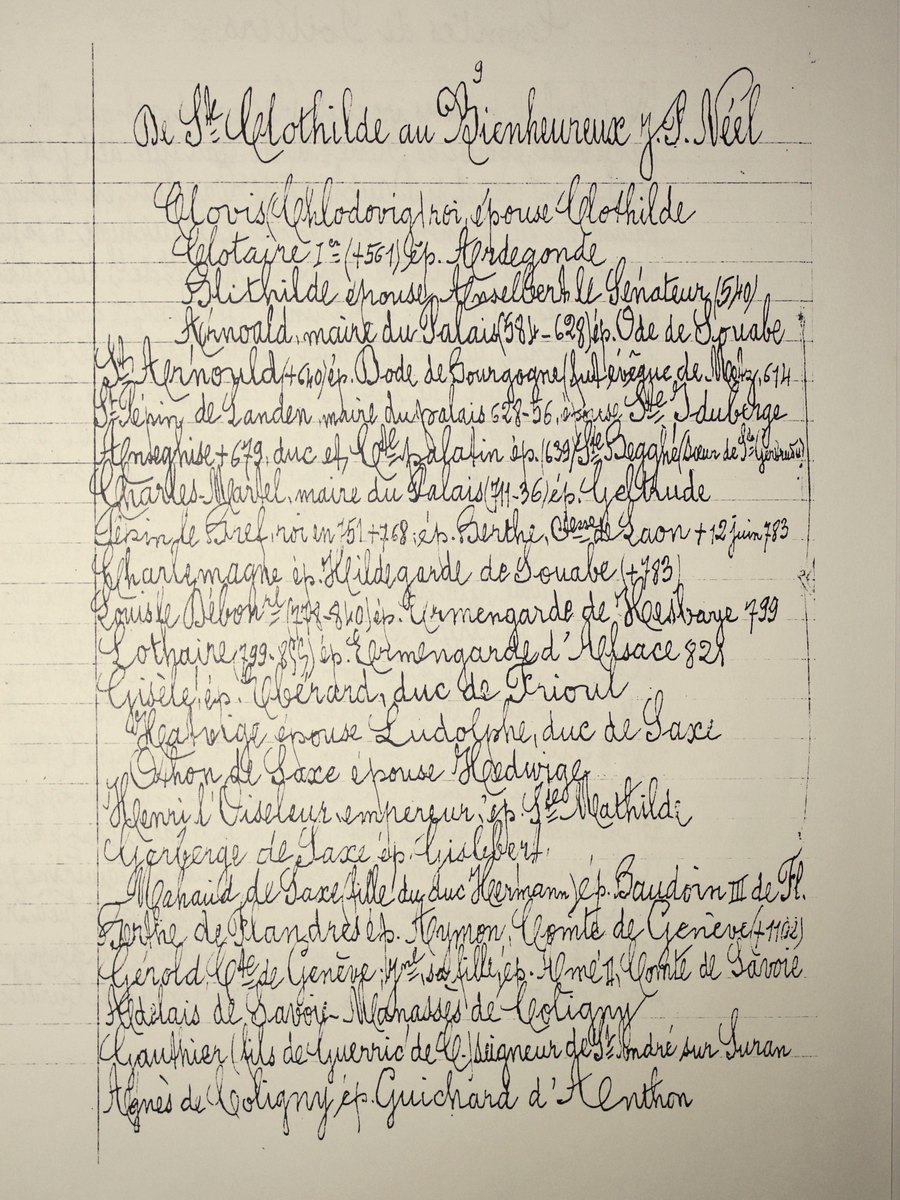 De Ste Clothilde au Bienheureux J.P. Néel
Clovis (Chlodovig) roi, épouse Clothilde
Clotaire Ier (+561) ép. Ardegonde
Blithilde épouse Anselbert le Sénateur (540)
Arnoald, maire du Palais (584-628) ép. Ode de Souabe
St Arnould (+640) ép. Dode de Bourgogne (fut évêque de Metz, 614
St Pépin de Landen, maire du palais 628-56, épouse Ste Iduberge
Anseghise +679, duc et Cte palatin ép. (639) Ste Begghe (sœur de Ste Gertrude)
Charles-Martel, maire du Palais (711-36) ép. Gertrude
Pépin le Bref, roi en 751 +768, ép. Berthe, Ctesse de Laon +12 juin 783
Charlemagne ép. Hildegarde de Souabe (+783)
Louis le Débonre (778-840) ép. Ermengarde de Hesbaye 799
Lothaire (799-855) ép. Ermengarde d'Alsace 821
Gisèle, ép. Ebérard, duc de Frioul
Hatwige épouse Ludolphe, duc de Saxe
Othon de Saxe épouse Hedwige
Henri l'Oiseleur, empereur, ép. Ste Mathilde
Gerberge de Saxe ép. Gislebert.
Mahaud de Saxe (fille du duc Hermann) ép. Baudoin III de Fl.
Berthe de Flandres ép. Aymon, Comte de Genève (+1102)
Gérold, Cte de Genève; sa fille, ép. Amé II, Comte de Savoie
Adélais de Savoie - Manassès de Coligny
Gauthier (fils de Guerric de C.) seigneur de St André sur Suran
Agnès de Coligny ép. Guichard d'Anthon